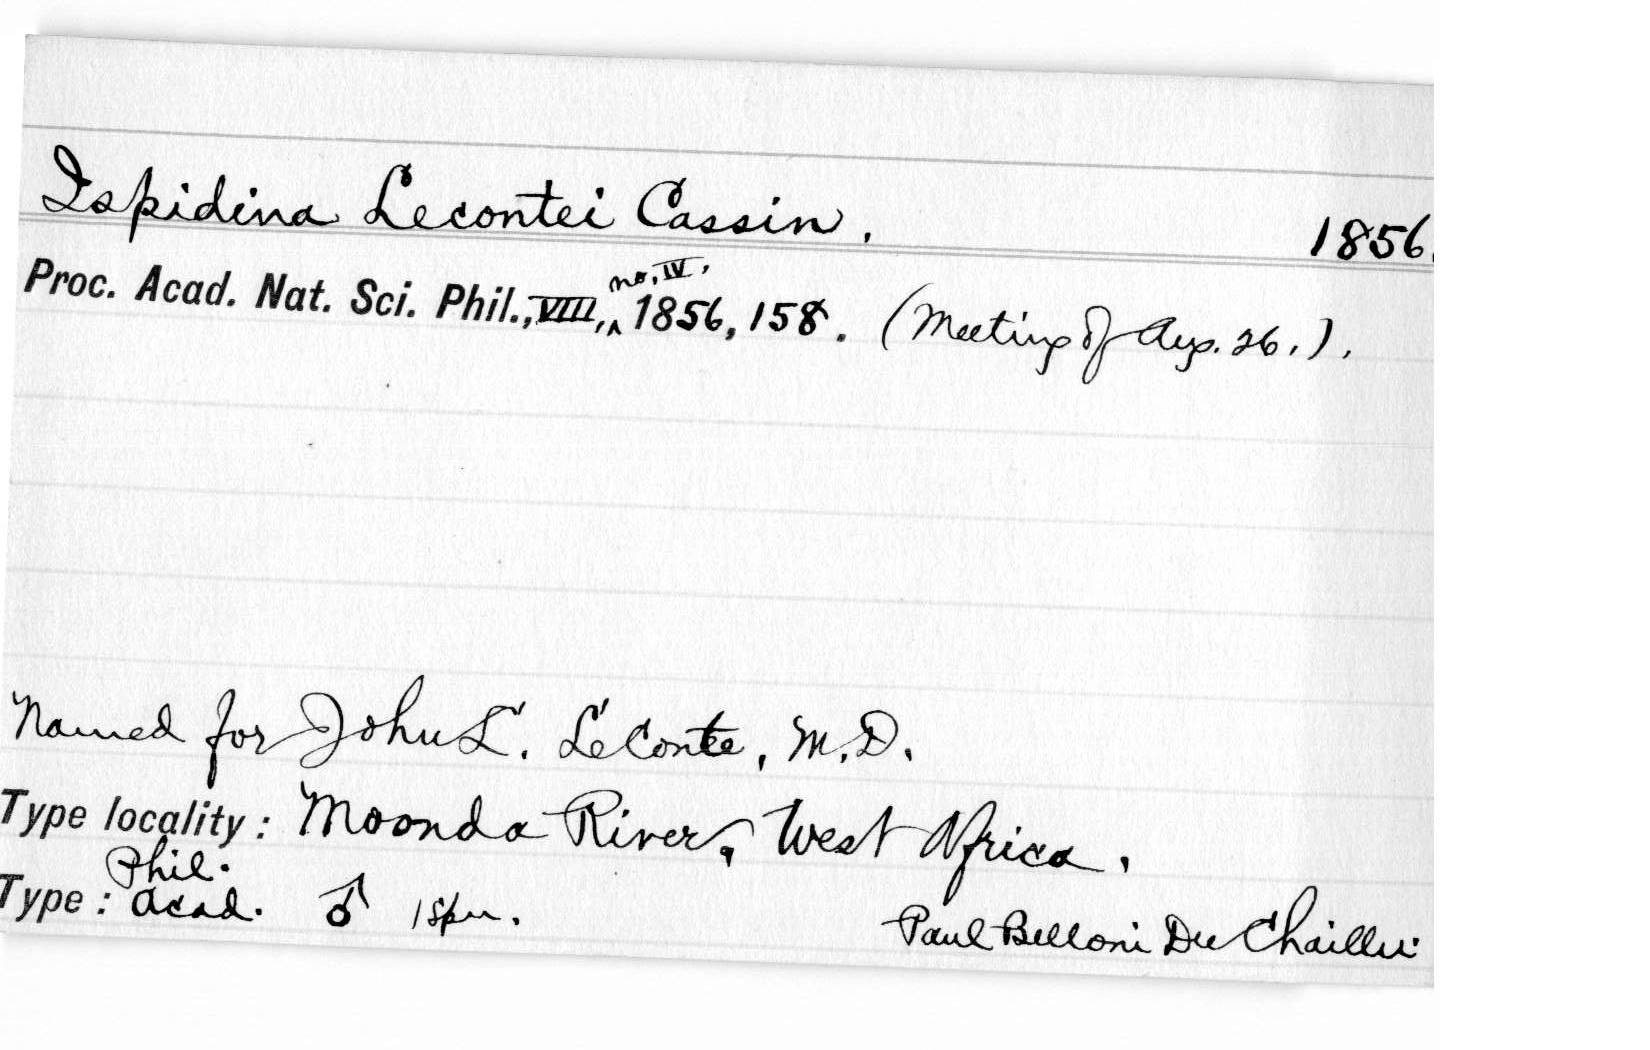 Ispidina Lecontei Cassin. 1856.
Proc. Acad. Nat. Sci. Phil., VIII, no. IV, 1856, 158. (Meeting of Aug. 26.).
Named for John L. LeConte, M.D.
Type locality: Moonda River, West Africa.
Type: Phil. Acad. ♂ 1 spm. Paul Belloni Du Chaillu